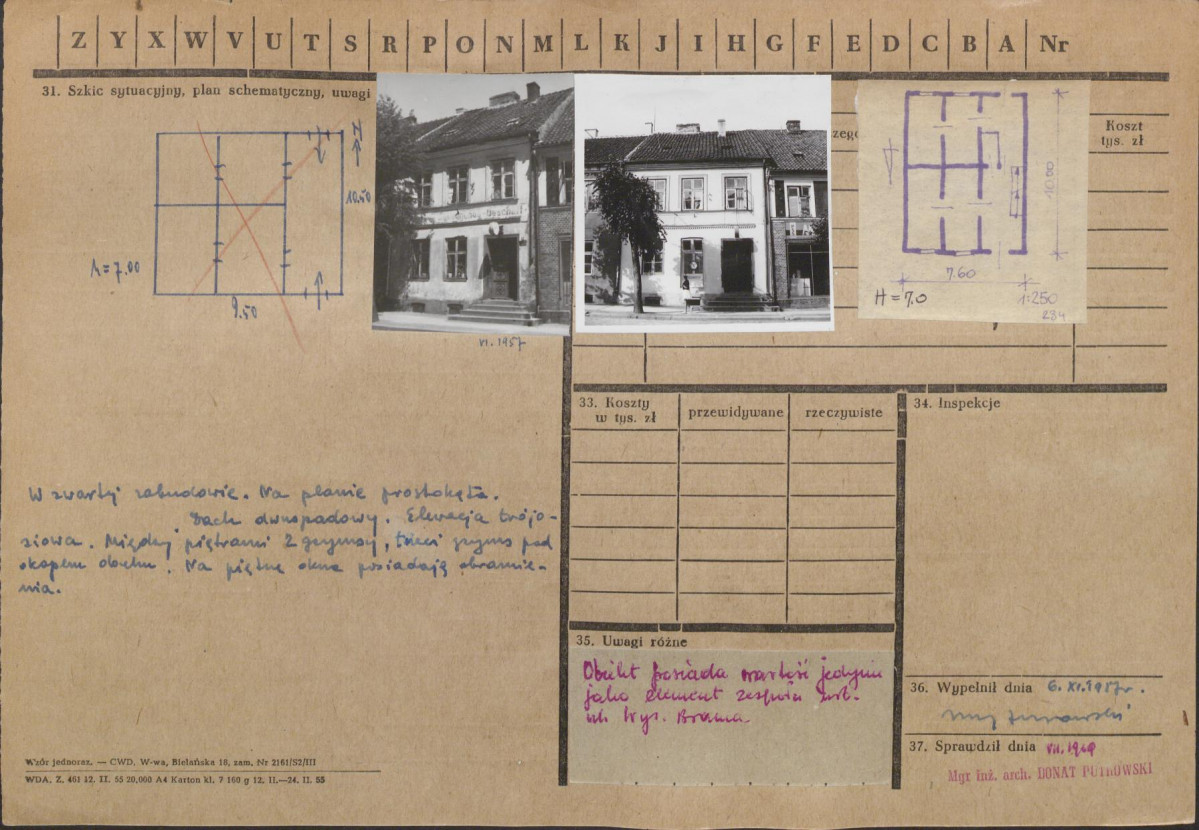 Z Y X W V U T S R P O N M L K J I H G F E D C B A Nr
31. Szkic sytuacyjny, plan schematyczny, uwagi
zegó
Koszt
tys. zł
N
10.50
h=7.00
9.50
VI. 1957
10.80
7.60
H=7.0
1:250
234
W zwartej zabudowie. Na planie prostokąta.
Dach dwuspadowy. Elewacja trójo-
siowa. Między piętrami 2 gzymsy, trzeci gzyms pod
okapem dachu. Na piętrze okna posiadają obramie-
nia.
33. Koszty
w tys. zł
przewidywane
rzeczywiste
34. Inspekcje
35. Uwagi różne
Obiekt posiada wartość jedynie
jako element zespołu urb.
ul. Wys. Brama
36. Wypełnił dnia 6. XI. 1957r.
37. Sprawdził dnia
Mgr inż. arch. DONAT PUTKOWSKI
Wzór jednoraz. — CWD, W-wa, Bielańska 18, zam. Nr 2161/S2/III
WDA. Z. 461 12. II. 55 20,000 A4 Karton kl. 7 160 g 12. II.—24. II. 55